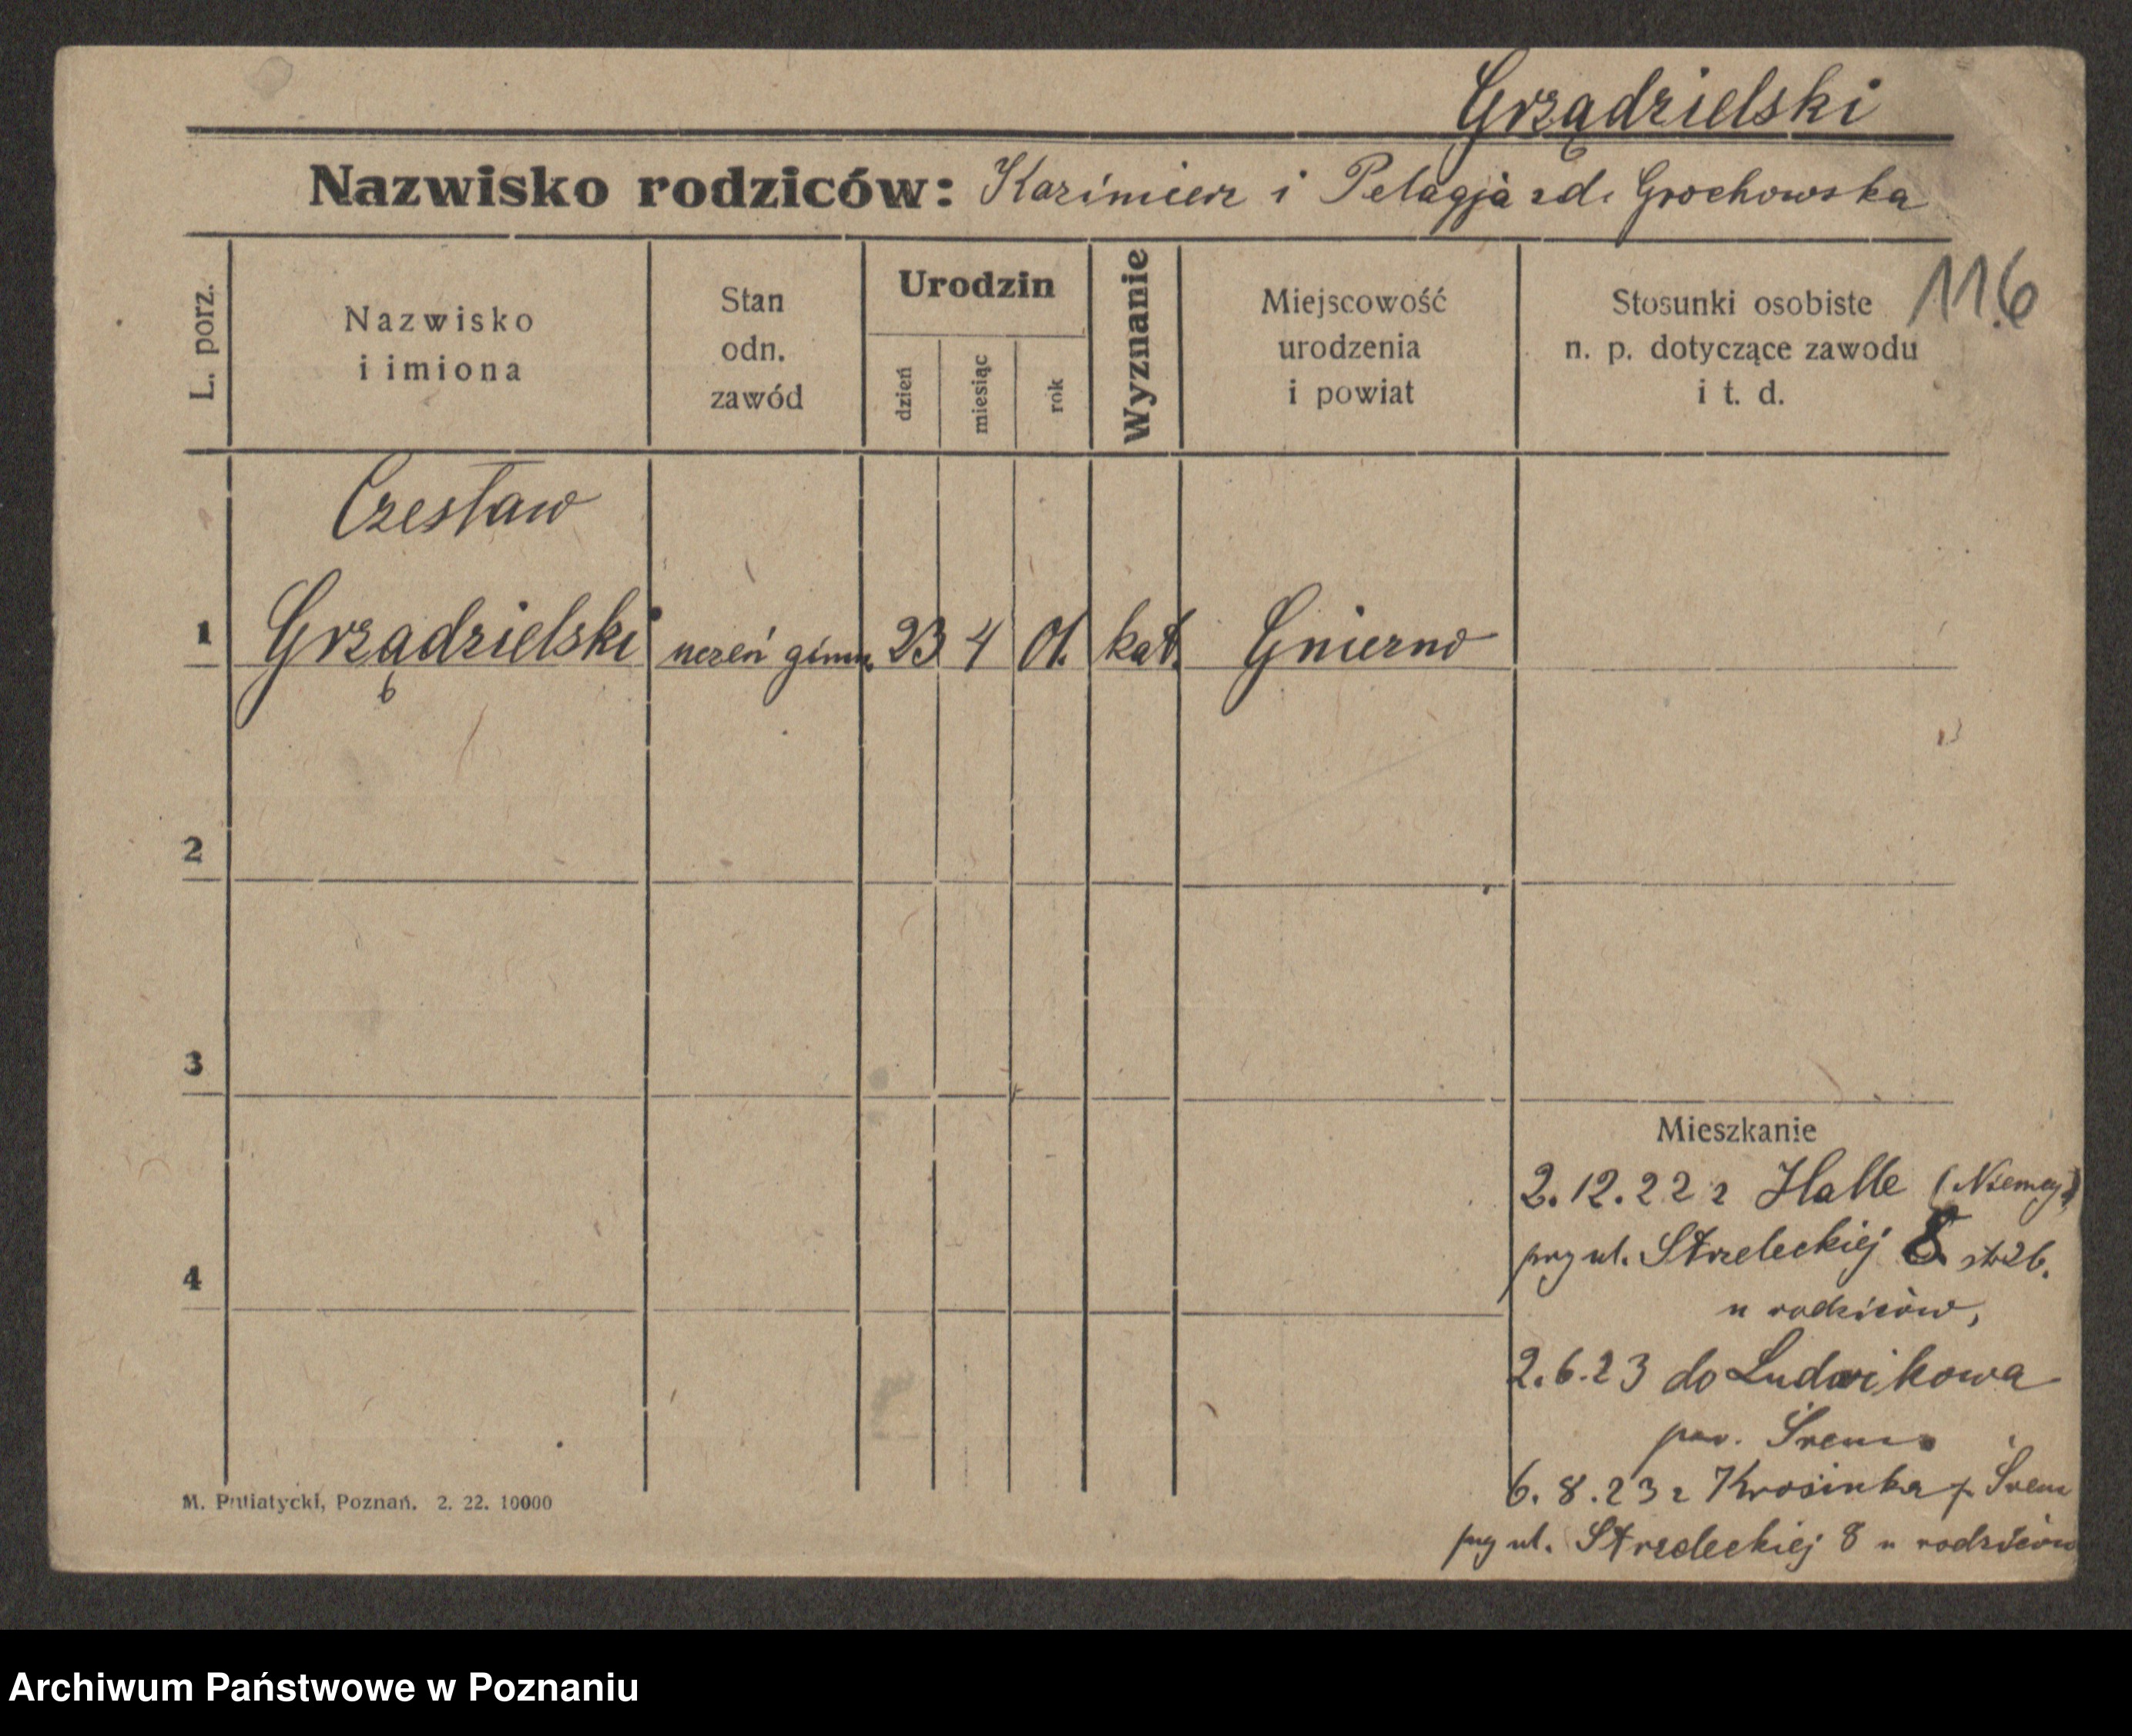 Grządzielski
Nazwisko rodziców: Kazimierz i Pelagja zd. Grochowska
116
L. porz.
Nazwisko
i imiona
Stan
odn.
zawód
Urodzin
dzień
miesiąc
rok
Wyznanie
Miejscowość
urodzenia
i powiat
Stosunki osobiste
n. p. dotyczące zawodu
i t. d.
Czesław
1 Grządzielski uczeń gimn. 23 4 01. kat. Gniezno
2
3
4
Mieszkanie
2.12.22 z Halle (Niemcy)
przy ul. Strzeleckiej 8
u rodziców,
2.6.23 do Ludwikowa
pow. Śrem
6.8.23 z Krosinka p. Śrem
przy ul. Strzeleckiej 8 u rodziców
M. Putiatycki, Poznań. 2. 22. 10000
Archiwum Państwowe w Poznaniu